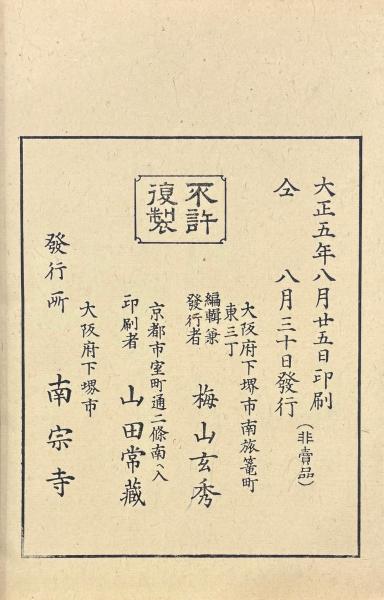 大正五年八月廿五日印刷
仝　八月三十日發行
（非賣品）
不許
復製
大阪府下堺市南旅篭町
東三丁
編輯兼
發行者
梅山玄秀
京都市室町通二條南ヘ入
印刷者
山田常藏
大阪府下堺市
發行所
南宗寺